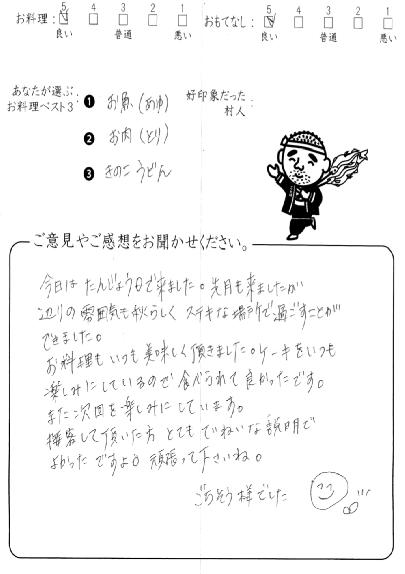 お料理： 5 4 3 2 1 おもてなし： 5 4 3 2 1
良い 普通 悪い 良い 普通 悪い
あなたが選ぶ お料理ベスト3：
❶ お魚（あゆ）
❷ お肉（とり）
❸ きのこうどん
好印象だった 村人：
ご意見やご感想をお聞かせください。
今日は たんじょう日で来ました。先月も来ましたが
辺りの雰囲気も秋らしく ステキな場所で過ごすことが
できました。
お料理もいつも美味しく頂きました。ケーキをいつも
楽しみにしているので食べられて良かったです。
また次回を楽しみにしています。
接客して頂いた方 とてもていねいな説明で
よかったですよ♪ 頑張って下さいね。
ごちそう様でした